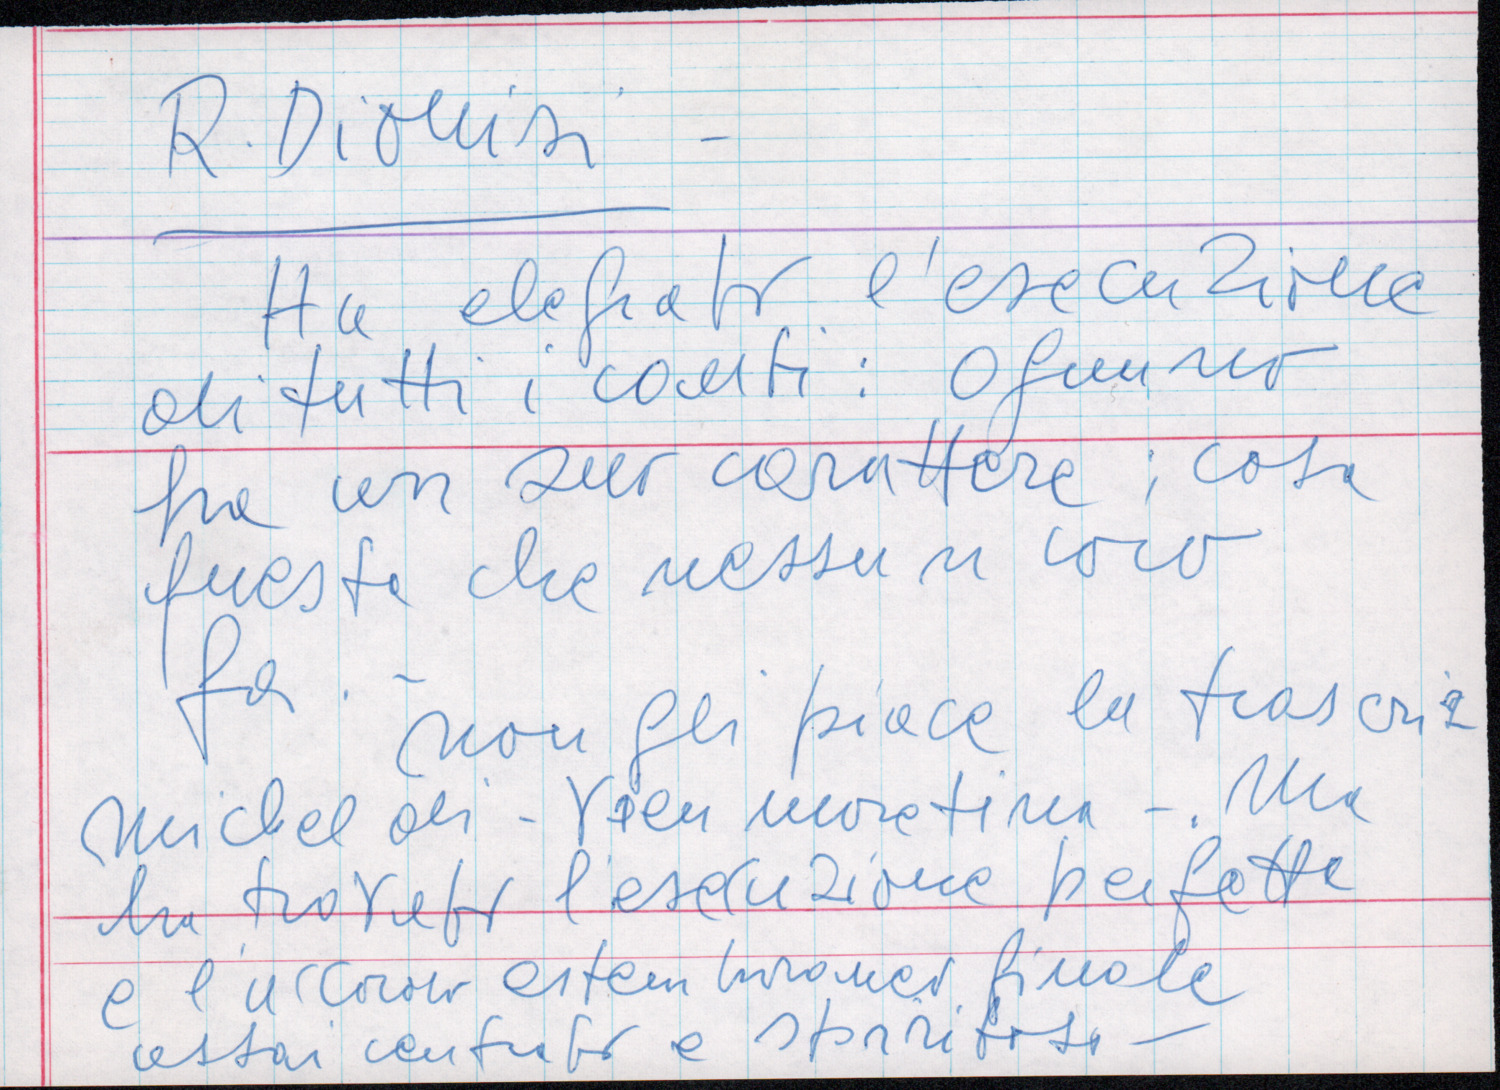 R. Dionisi -
Ha elogiato l'esecuzione
di tutti i canti: Ognuno
ha un suo carattere; cosa
questa che nessun coro
fa. -
non gli piace la trascriz
Michel di - Vien moretina -. Ma
ha trovato l'esecuzione perfetta
e l'accordo estemporaneo finale
assai centrato e spiritoso -